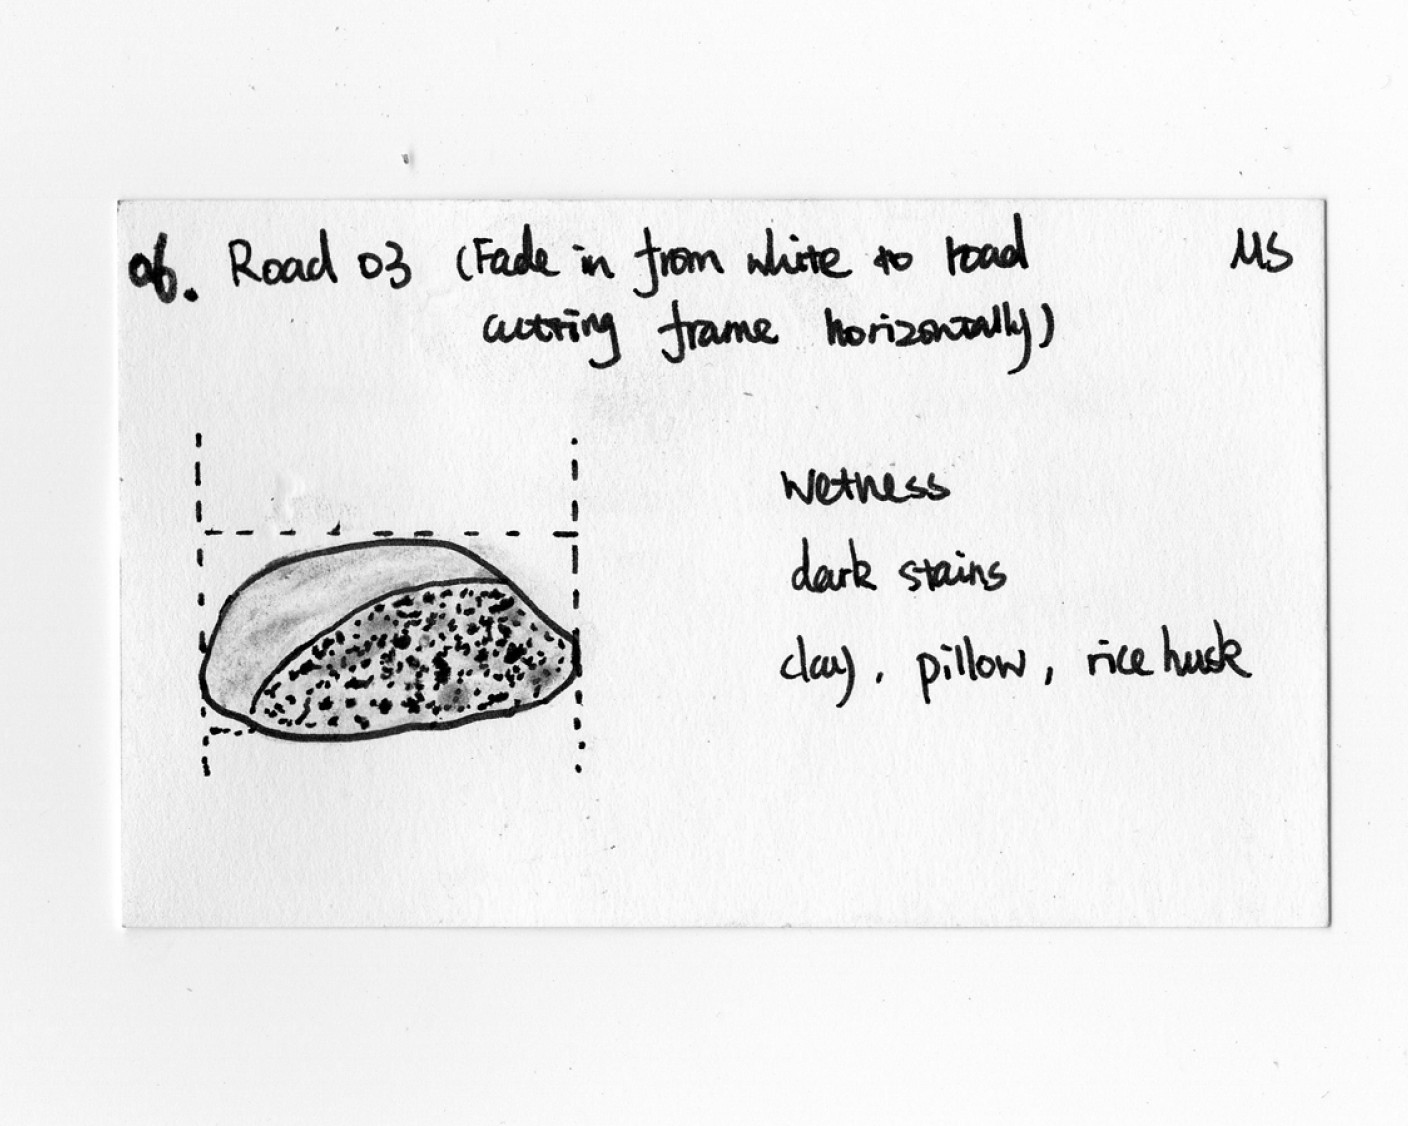 06. Road 03 (Fade in from white to road MS
cutting frame horizontally)
wetness
dark stains
clay, pillow, rice husk